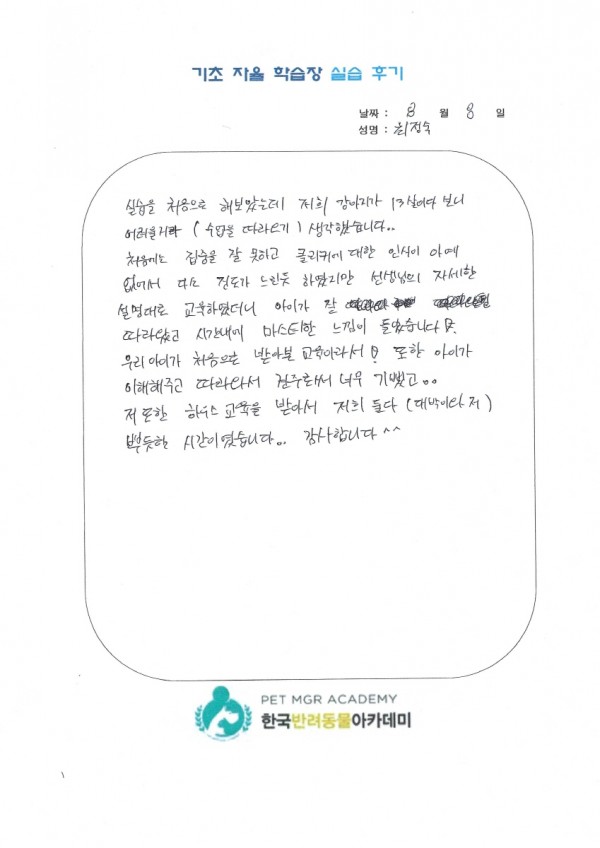 기초 자율 학습장 실습 후기
날짜 : 8 월 8 일
성명 : 최정숙
실습을 처음으로 해보았는데 저희 강아지가 13살이다 보니
어려울거라 (수업을 따라오기) 생각했습니다..
처음에는 집중을 잘 못하고 클리커에 대한 인식이 아예
없어서 다소 진도가 느린듯 하였지만 선생님의 자세한
설명대로 교육하였더니 아이가 잘
따라왔고 시간내에 마스터한 느낌이 들었습니다.
우리아이가 처음으로 받아본 교육이라서 또한 아이가
이해해주고 따라와서 견주로써 너무 기뻤고..
저 또한 하우스 교육을 받아서 저희 둘다 (대박이와 저)
뿌듯한 시간이였습니다.. 감사합니다^^
PET MGR ACADEMY
한국반려동물아카데미